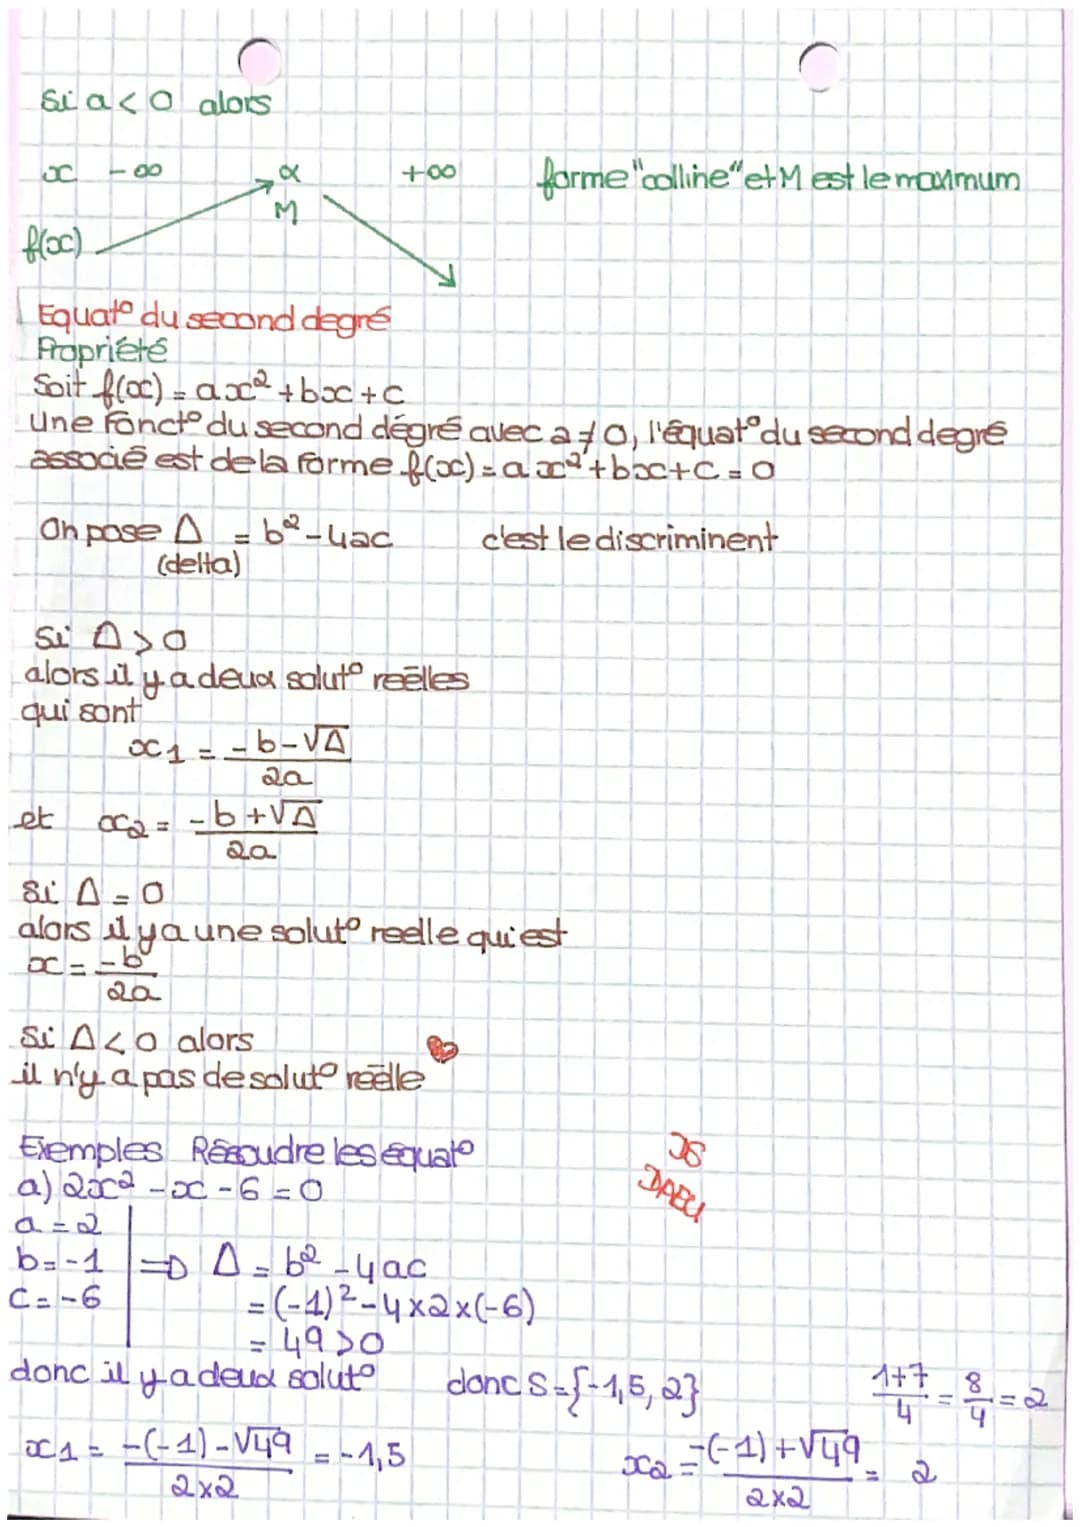 Si a < 0 alors
x -∞ α +∞ forme "colline" et M est le maximum
M
f(x)
Equat° du second degré
Propriété
Soit f(x) = ax² + bx + c
une fonct° du second dégré avec a ≠ 0, l'équat° du second degré
associé est de la forme f(x) = ax² + bx + c = 0
On pose Δ = b² - 4ac c'est le discriminent
(delta)
Si Δ > 0
alors il y a deux solut° réelles
qui sont
x1 = (-b-√Δ)/2a
et x2 = (-b+√Δ)/2a
Si Δ = 0
alors il y a une solut° reelle qui est
x = -b/2a
Si Δ < 0 alors
il n'y a pas de solut° réelle
Exemples Résoudre les équat°
a) 2x² - x - 6 = 0
a = 2
b = -1 => Δ = b² - 4ac
c = -6 = (-1)² - 4x2x(-6)
= 49 > 0
donc il y a deux solut° donc S = {-1,5, 2} (1+7)/4 = 8/4 = 2
x1 = (-(-1)-√49)/(2x2) = -1,5 x2 = (-(-1)+√49)/(2x2) = 2